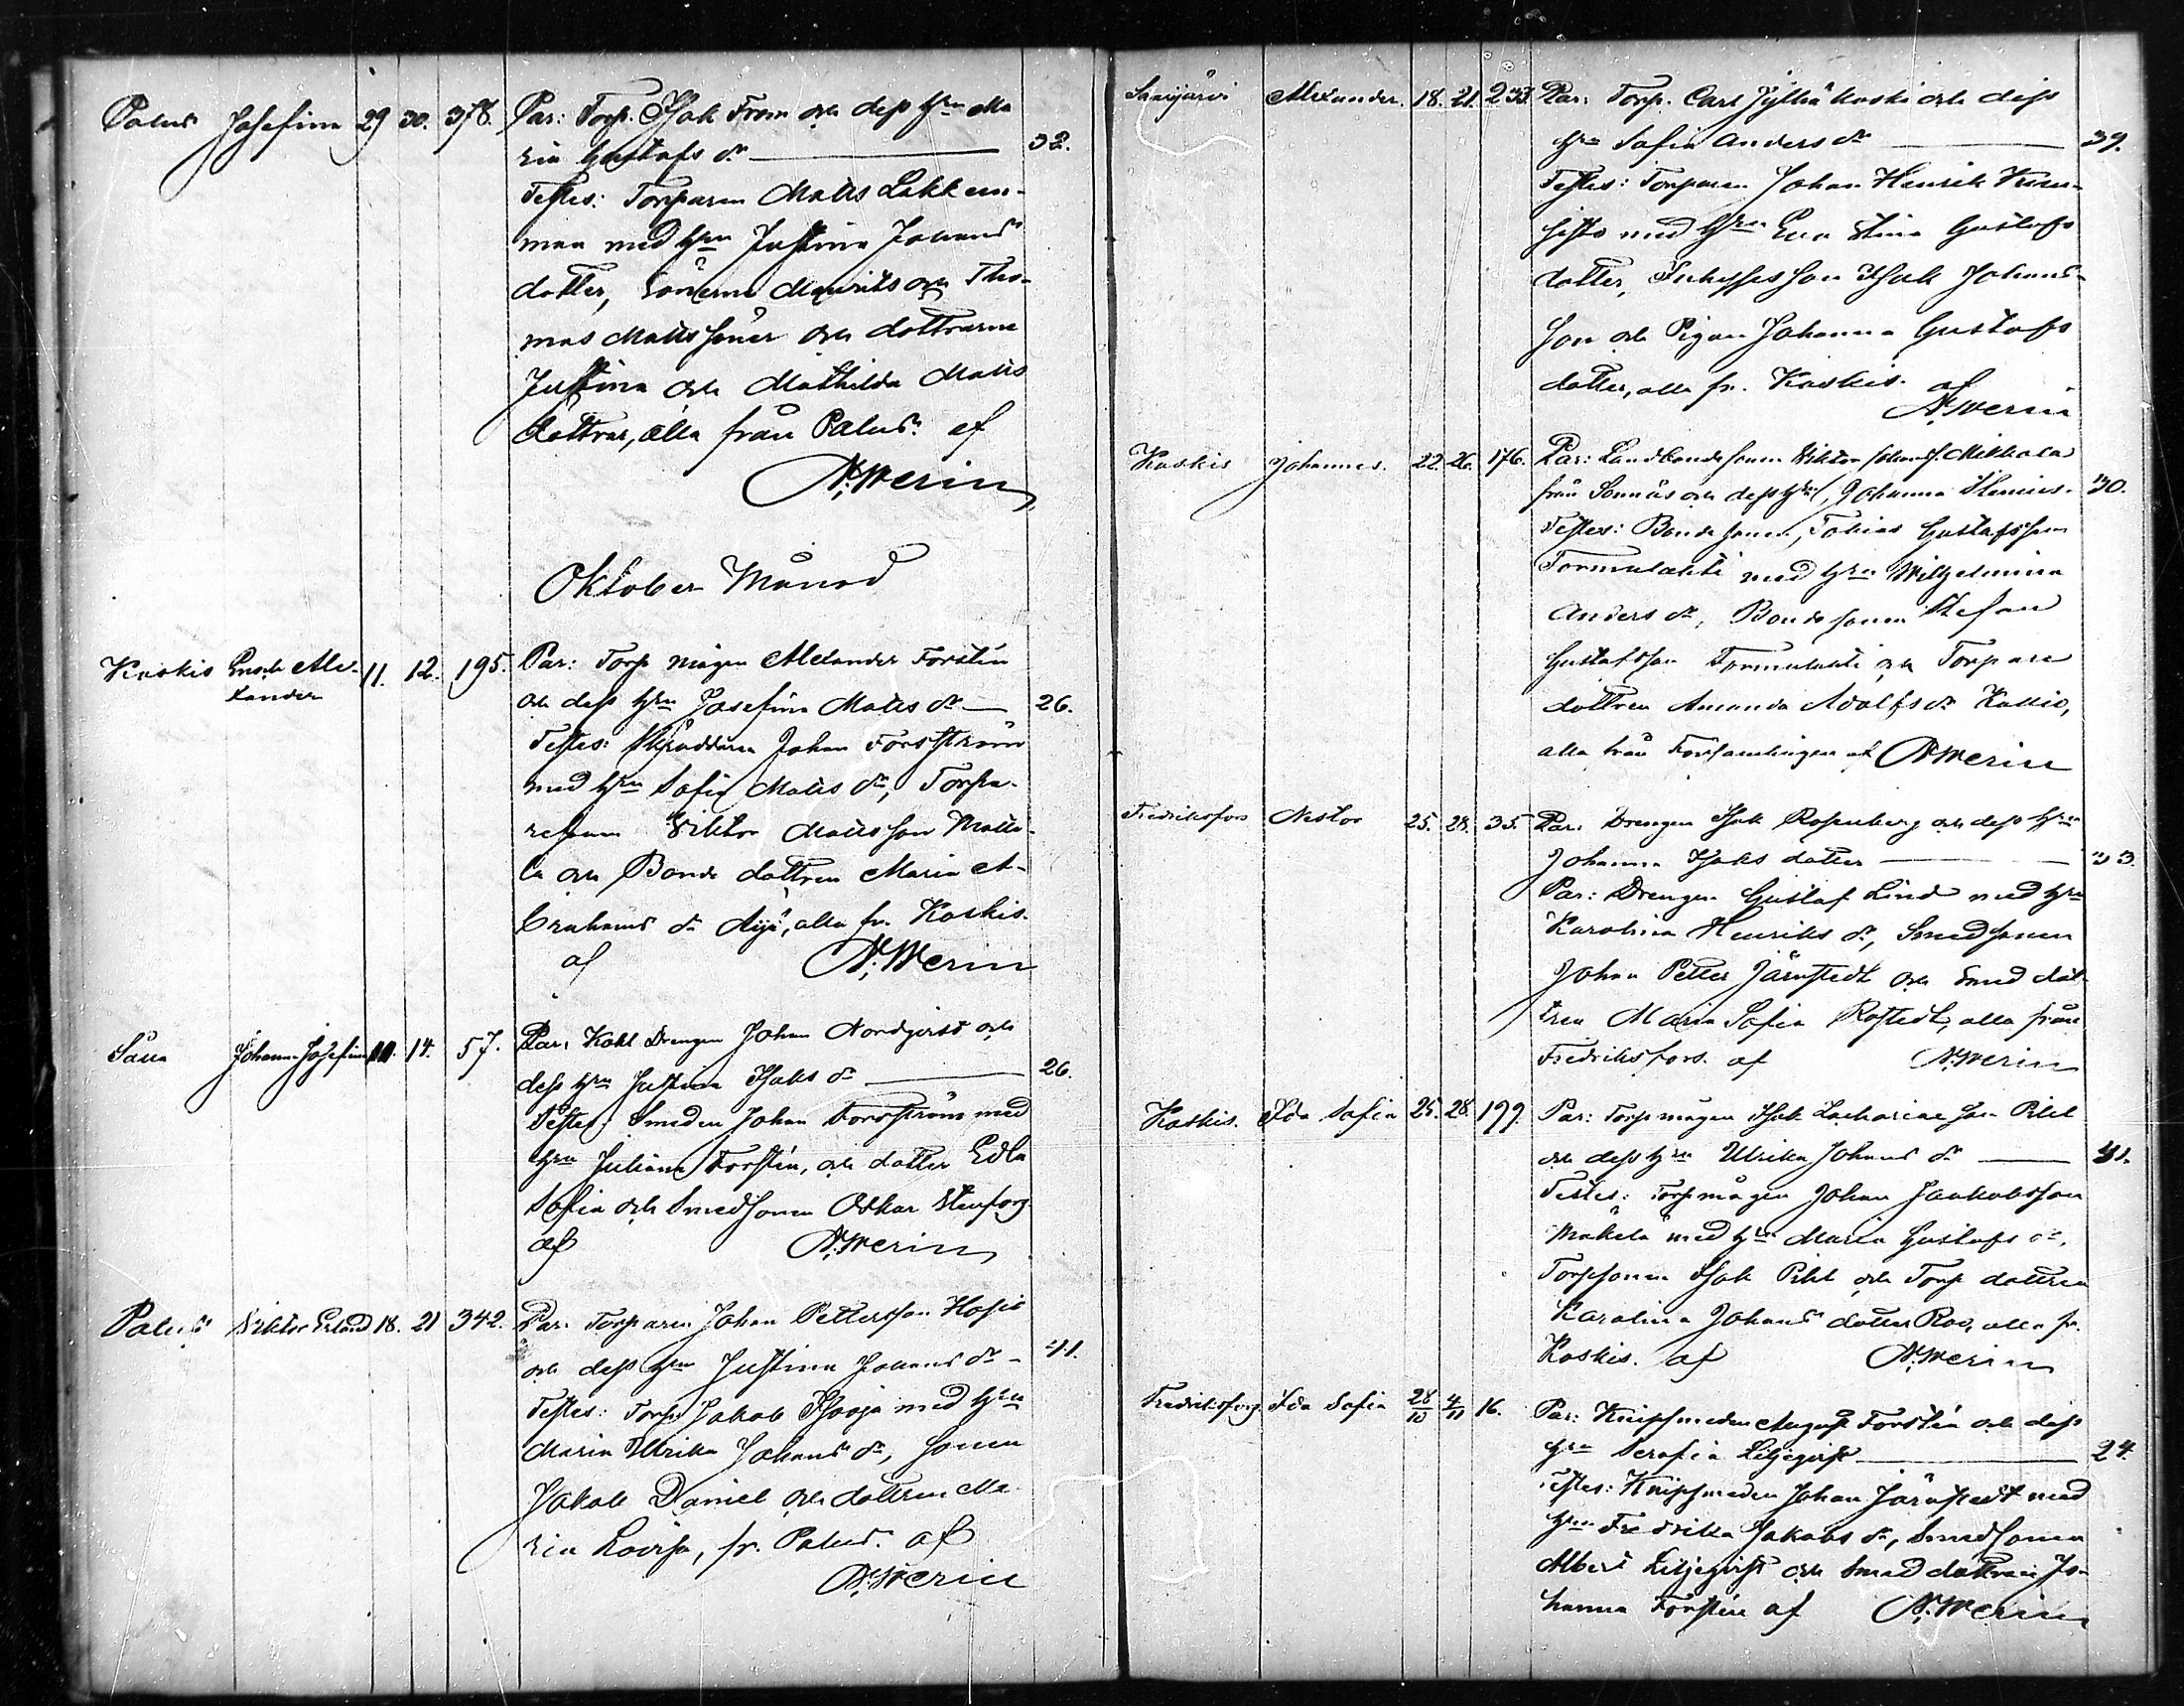 Palus Josefina 29 30. 378. Par: Torp. Isak From och dess hru Ma
ria Gustafs dr 32.
Testes: Torparen Matts Lakkein-
man med hru Justina Johans
dotter, Sönerne Maurits och Tho-
mas Matts söner och döttrarne
Justina och Mathilda Matts
döttrar, alla från Palus. af
N. Merin
Oktober Månad
Koskis Enok Ale- 11. 12. 195. Par: Torp mågen Alexander Forstén
xander
och dess hru Josefina Matts dr 26.
Testes: Skräddaren Johan Forsström
med hru Sofia Matts dr, Torpa-
resonen Viktor Mattsson Matti-
la och Bonde dottren Maria A-
brahams dr Äijä, alla fr. Koskis.
af N. Merin
Säua Johanna Josefina 14. 57. Par: Kohl Drengen Johan Nordqvist och
dess hru Justina Isaks dr 26.
Testes: Smeden Johan Forsström med
hru Juliana Forstén, och dotter Edla
Sofia och Smedsonen Oskar Stenfors
af N. Merin
Palus Viktor Erland 18. 21 342. Par: Torparen Johan Pettersson Hosio
och dess hru Justina Johans dr 41.
Testes: Torp. Jakob Isooja med hru
Maria Ulrika Johans dr, sonen
Jakob Daniel och dottren Ma
ria Lovisa, fr. Palus. af
N. Merin
Saarijärvi Alexander. 18. 21. 233. Par: Torp. Carl Jylhäkoski och dess
hru Sofia Anders dr 39.
Testes: Torparen Johan Henrik
med hru Eva Stina Gustafs
dotter, Isak Johans-
son och Pigan Johanna Gustafs
dotter, alla fr. Koskis. af
N. Merin
Koskis Johannes. 22. 26. 176. Par: Landbondesonen Viktor Johans. Mikkola
från Sonnäs och dess hru, Johanna 30.
Testes: Bonde sonen, Tobias Gustafsson
Tommulahti med hru Wilhelmina
Anders dr, Bonde sonen Stefan
Gustafsson Tommulahti och Torpare
dottren Amanda Adolfs dr Kallio,
alla från Församlingen af N. Merin
Fredriksfors Nestor 25. 28. 35. Par: Drengen Isak Rosenberg och dess hru
Johanna Isaks dotter 33.
Par: Drengen Gustaf Lind med hru
Karolina Henriks dr, Smedsonen
Johan Petter Järnstedt och Smed dot
tren Maria Sofia Rostedt, alla från
Fredriksfors. af N. Merin
Koskis. Ida Sofia 25. 28. 199. Par: Torp mågen Isak Zachariae son Pihl
och dess hru Ulrika Johans dr 41.
Testes: Torpmågen Johan Jaakobsson
Mäkelä med hru Maria Gustafs dr,
Torpsonen Isak Pihl och Torp dottren
Karolina Johans dotter Roo, alla fr.
Koskis. af N. Merin
Fredriksfors Ida Sofia 28/10 4/11 16. Par: Knipsmeden August Forstén och dess
hru Serafia Liljeqvist 24.
Testes: Knipsmeden Johan Järnstedt med
hru Fredrika Jakobs dr, Smedsonen
Albert Liljeqvist och Smed dottren Jo-
hanna Forstén af N. Merin